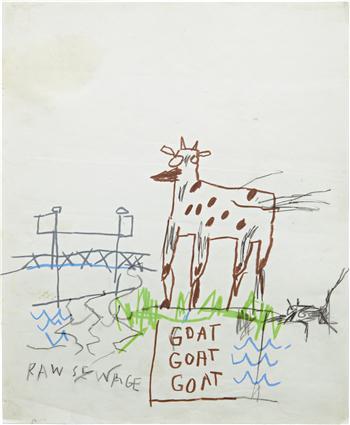 GOAT
GOAT
GOAT
RAW SEWAGE